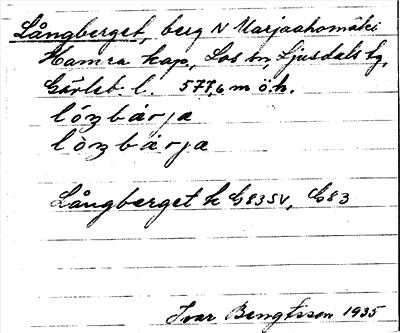 Långberget, berg N Marjaahomäki
Hamra kap., Los sn, Ljusdals tg,
Gävleb. l. 577,6 m ö.h.
lóŋbärja
lòŋbärja
Långberget k G83SV, G83
Ivar Bengtsson 1935